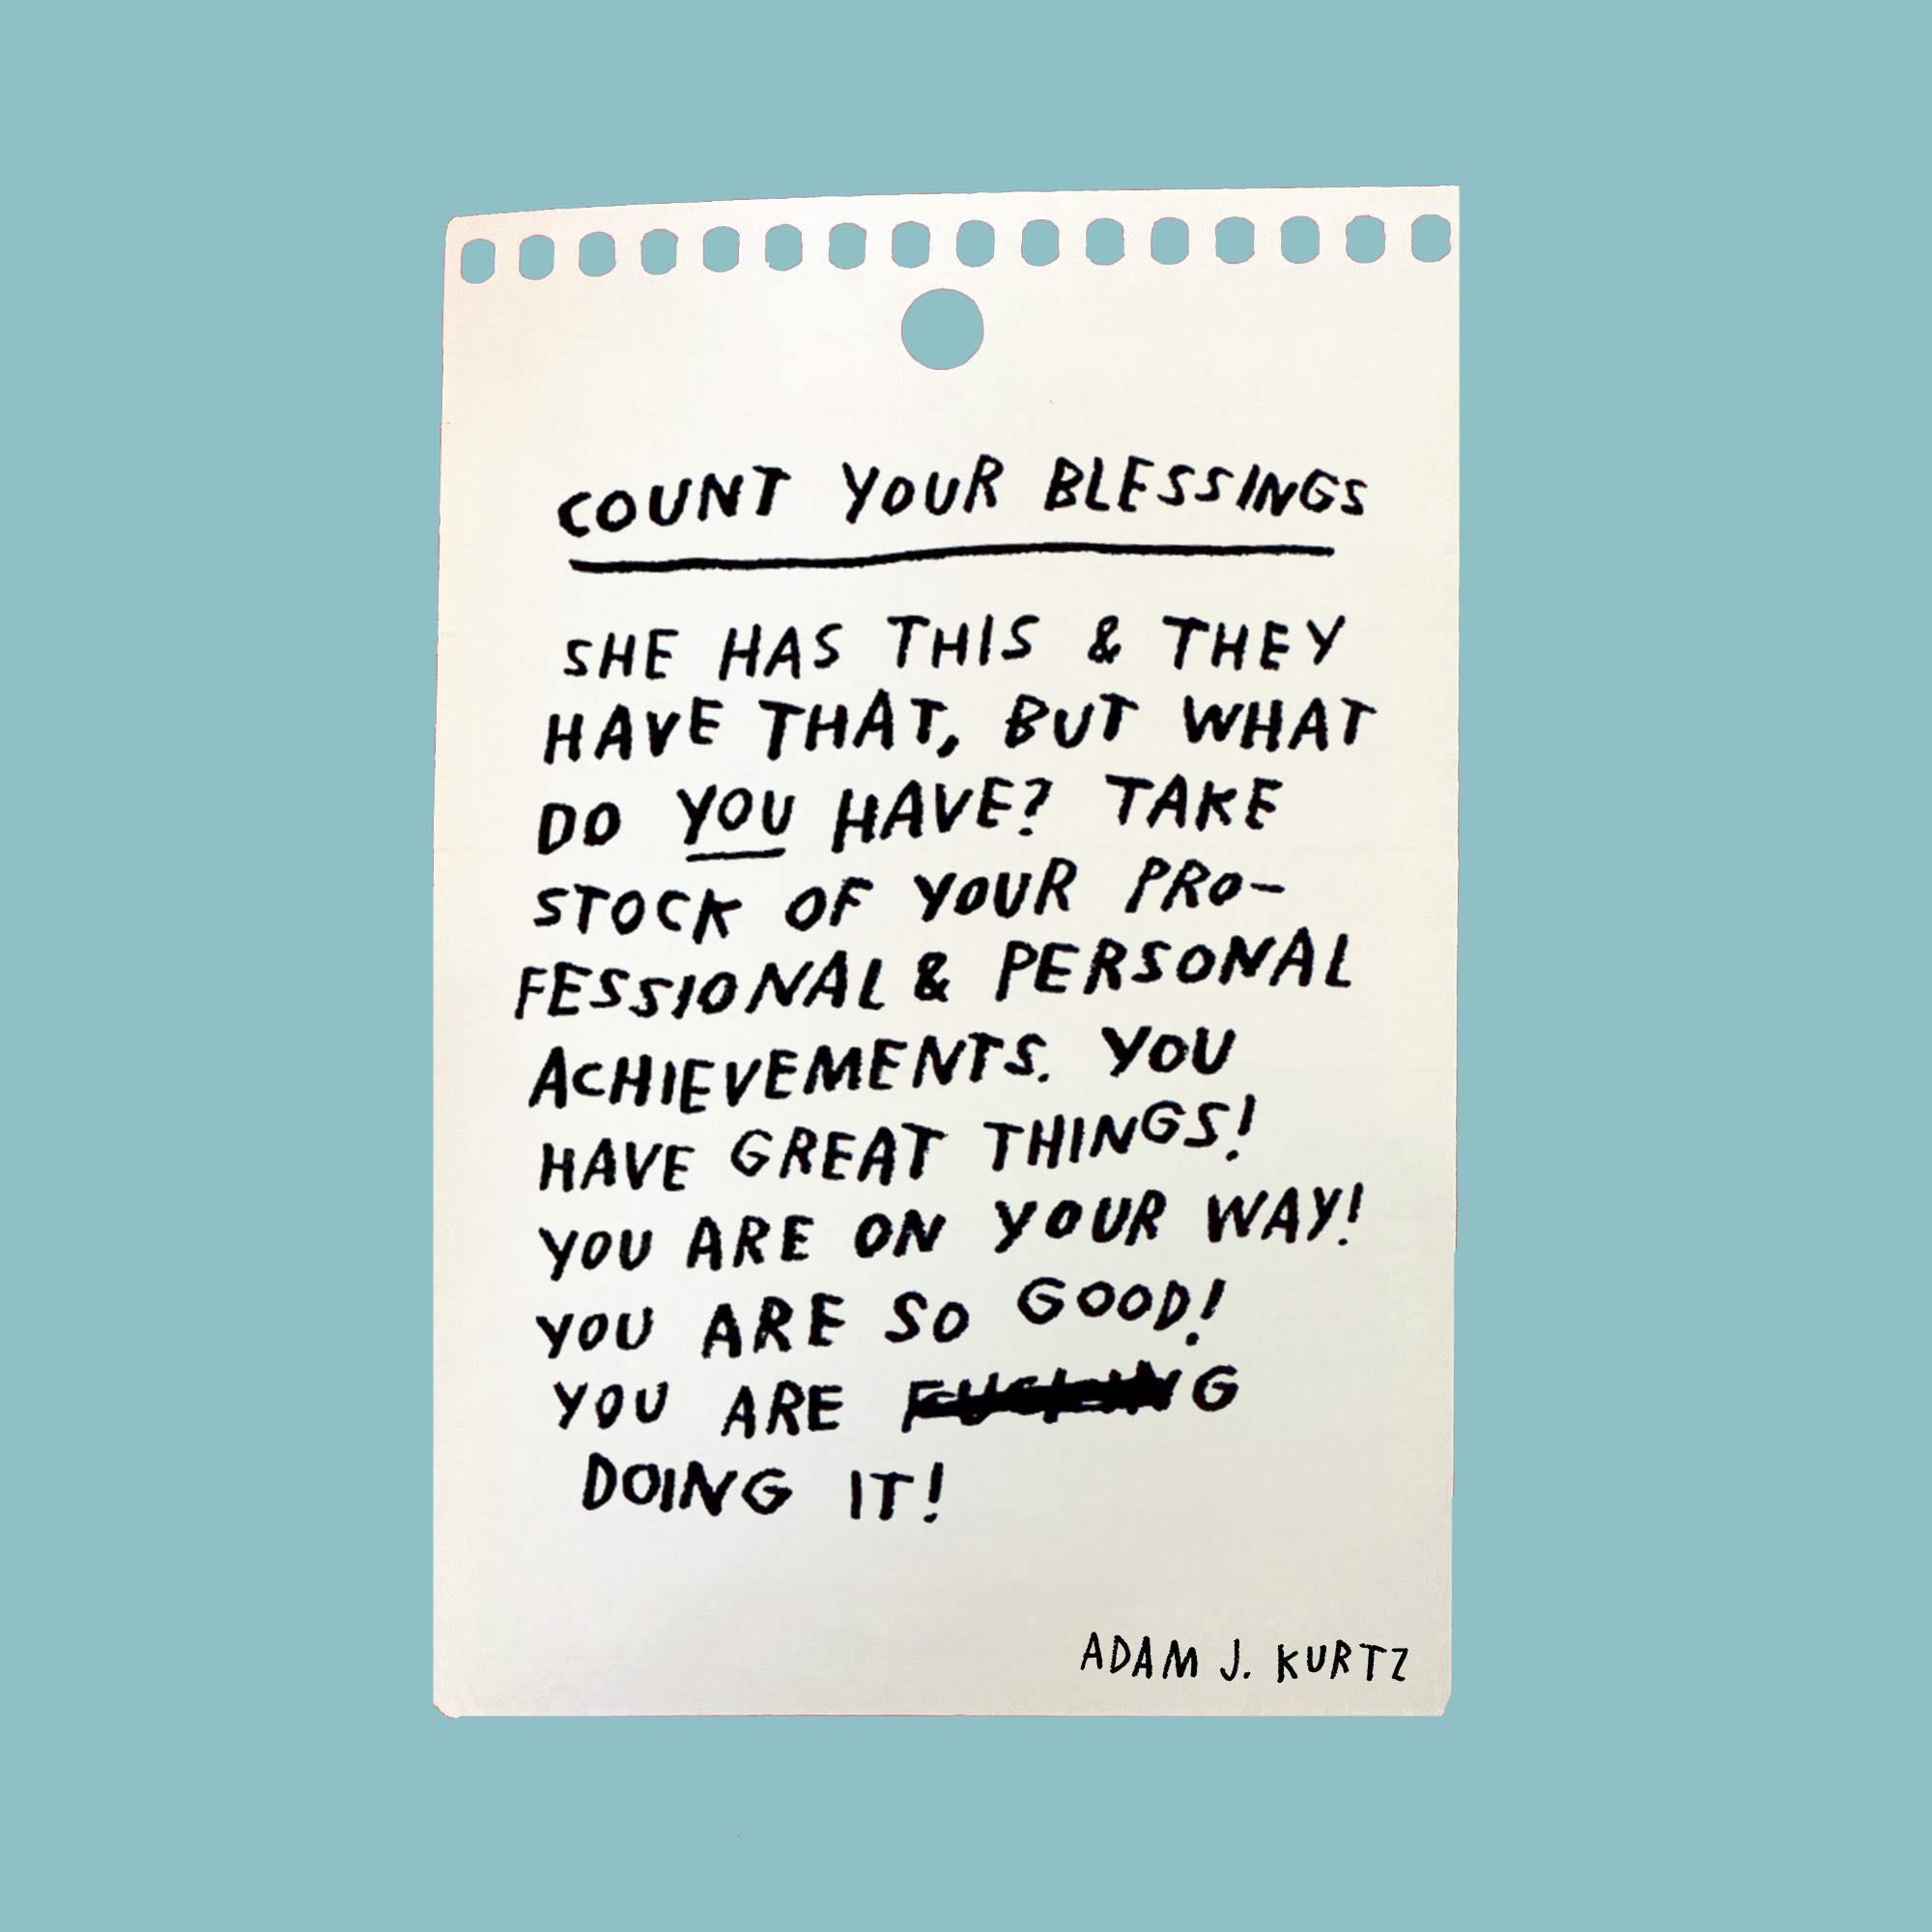 COUNT YOUR BLESSINGS
SHE HAS THIS & THEY
HAVE THAT, BUT WHAT
DO YOU HAVE? TAKE
STOCK OF YOUR PRO-
FESSIONAL & PERSONAL
ACHIEVEMENTS. YOU
HAVE GREAT THINGS!
YOU ARE ON YOUR WAY!
YOU ARE SO GOOD!
YOU ARE FUCKING
DOING IT!
ADAM J. KURTZ